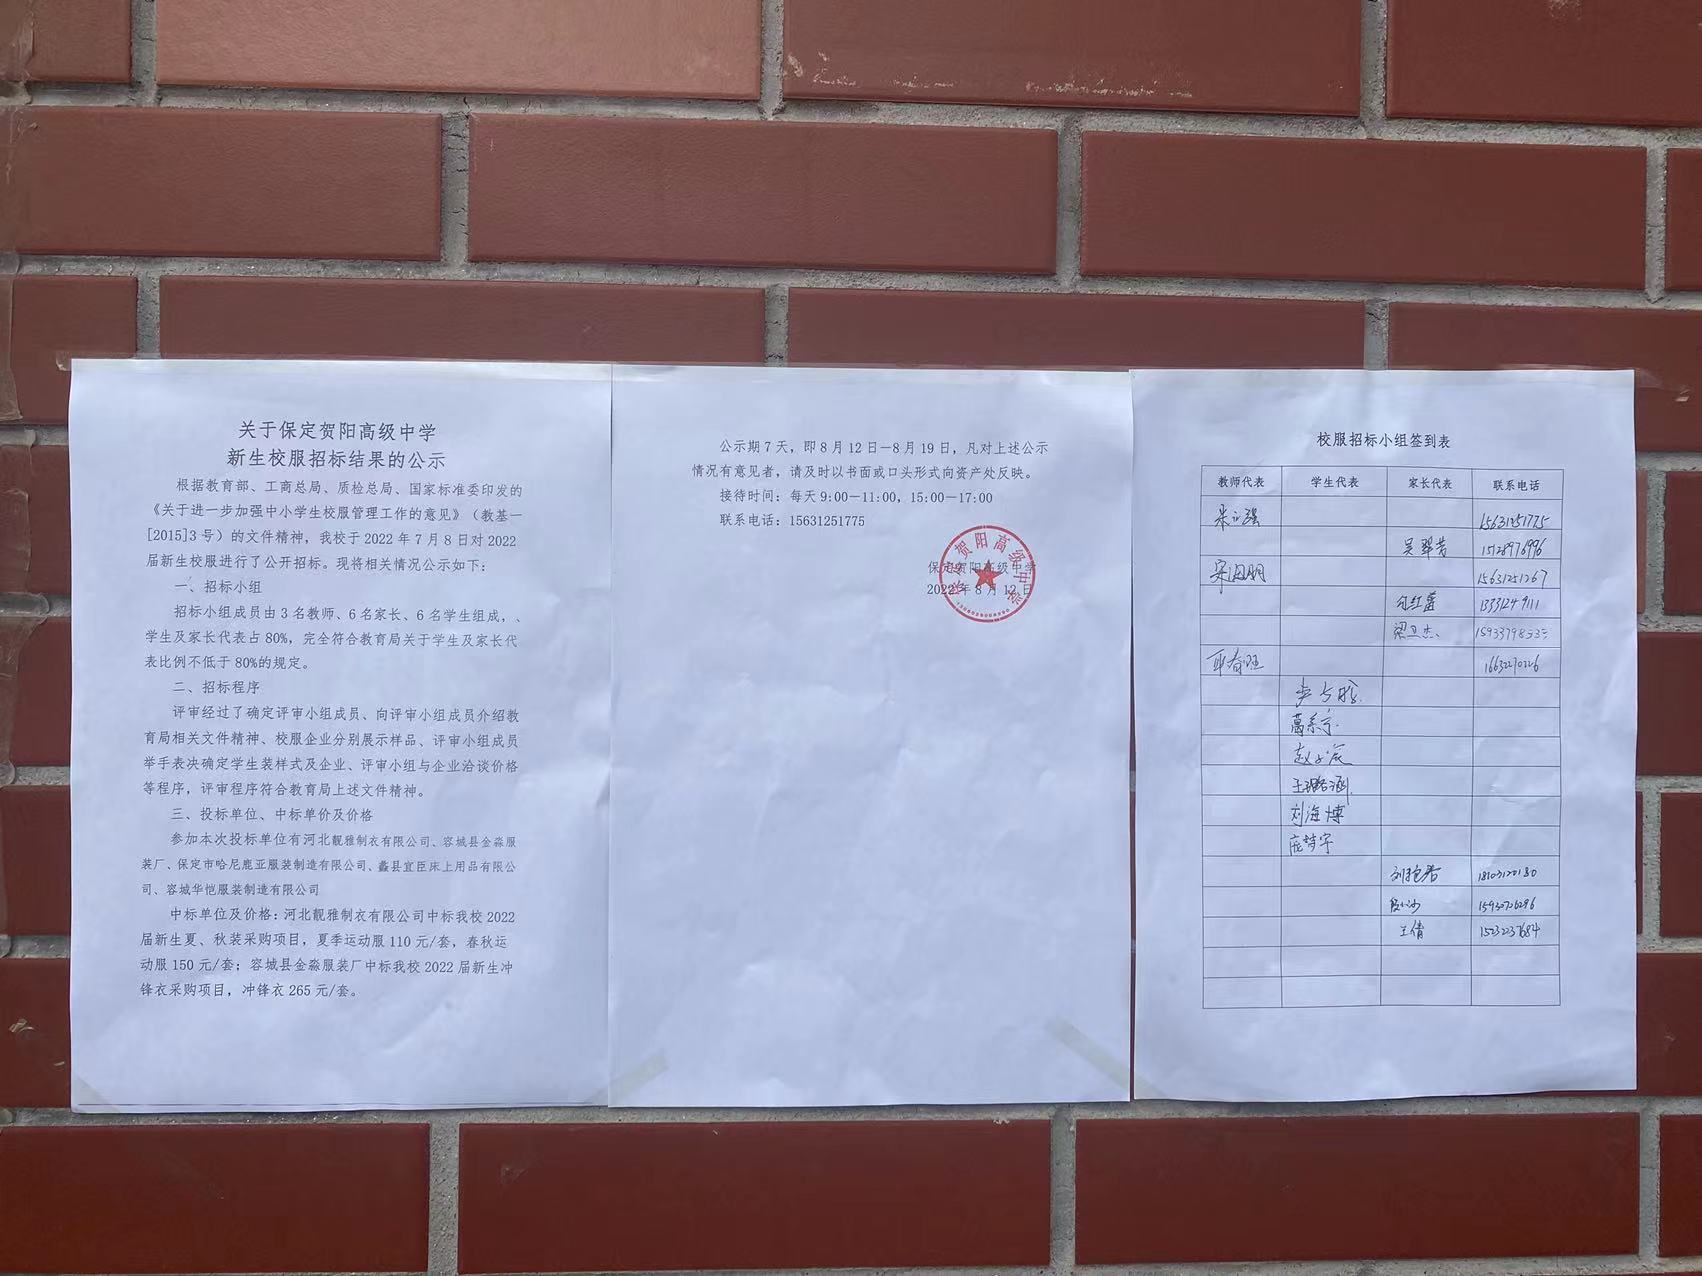 关于保定贺阳高级中学
新生校服招标结果的公示
根据教育部、工商总局、质检总局、国家标准委印发的
《关于进一步加强中小学生校服管理工作的意见》（教基一
[2015]3号）的文件精神，我校于2022年7月8日对2022
届新生校服进行了公开招标。现将相关情况公示如下：
一、招标小组
招标小组成员由3名教师、6名家长、6名学生组成，、
学生及家长代表占80%，完全符合教育局关于学生及家长代
表比例不低于80%的规定。
二、招标程序
评审经过了确定评审小组成员、向评审小组成员介绍教
育局相关文件精神、校服企业分别展示样品、评审小组成员
举手表决确定学生装样式及企业、评审小组与企业洽谈价格
等程序，评审程序符合教育局上述文件精神。
三、投标单位、中标单价及价格
参加本次投标单位有河北靓雅制衣有限公司、容城县金淼服
装厂、保定市哈尼鹿亚服装制造有限公司、蠡县宜臣床上用品有限公
司、容城华恺服装制造有限公司
中标单位及价格：河北靓雅制衣有限公司中标我校2022
届新生夏、秋装采购项目，夏季运动服110元/套，春秋运
动服150元/套；容城县金淼服装厂中标我校2022届新生冲
锋衣采购项目，冲锋衣265元/套。
公示期7天，即8月12日—8月19日，凡对上述公示
情况有意见者，请及时以书面或口头形式向资产处反映。
接待时间：每天9:00—11:00，15:00—17:00
联系电话：15631251775
保定贺阳高级中学
2022年8月12日
校服招标小组签到表
教师代表 学生代表 家长代表 联系电话
15631251775
吴翠芳 15128976996
宋海朋 15631251267
13331249111
梁卫杰
16632270226
葛家宁
刘海博
庞梦宇
18103120180
15930726296
王倩 15232237684